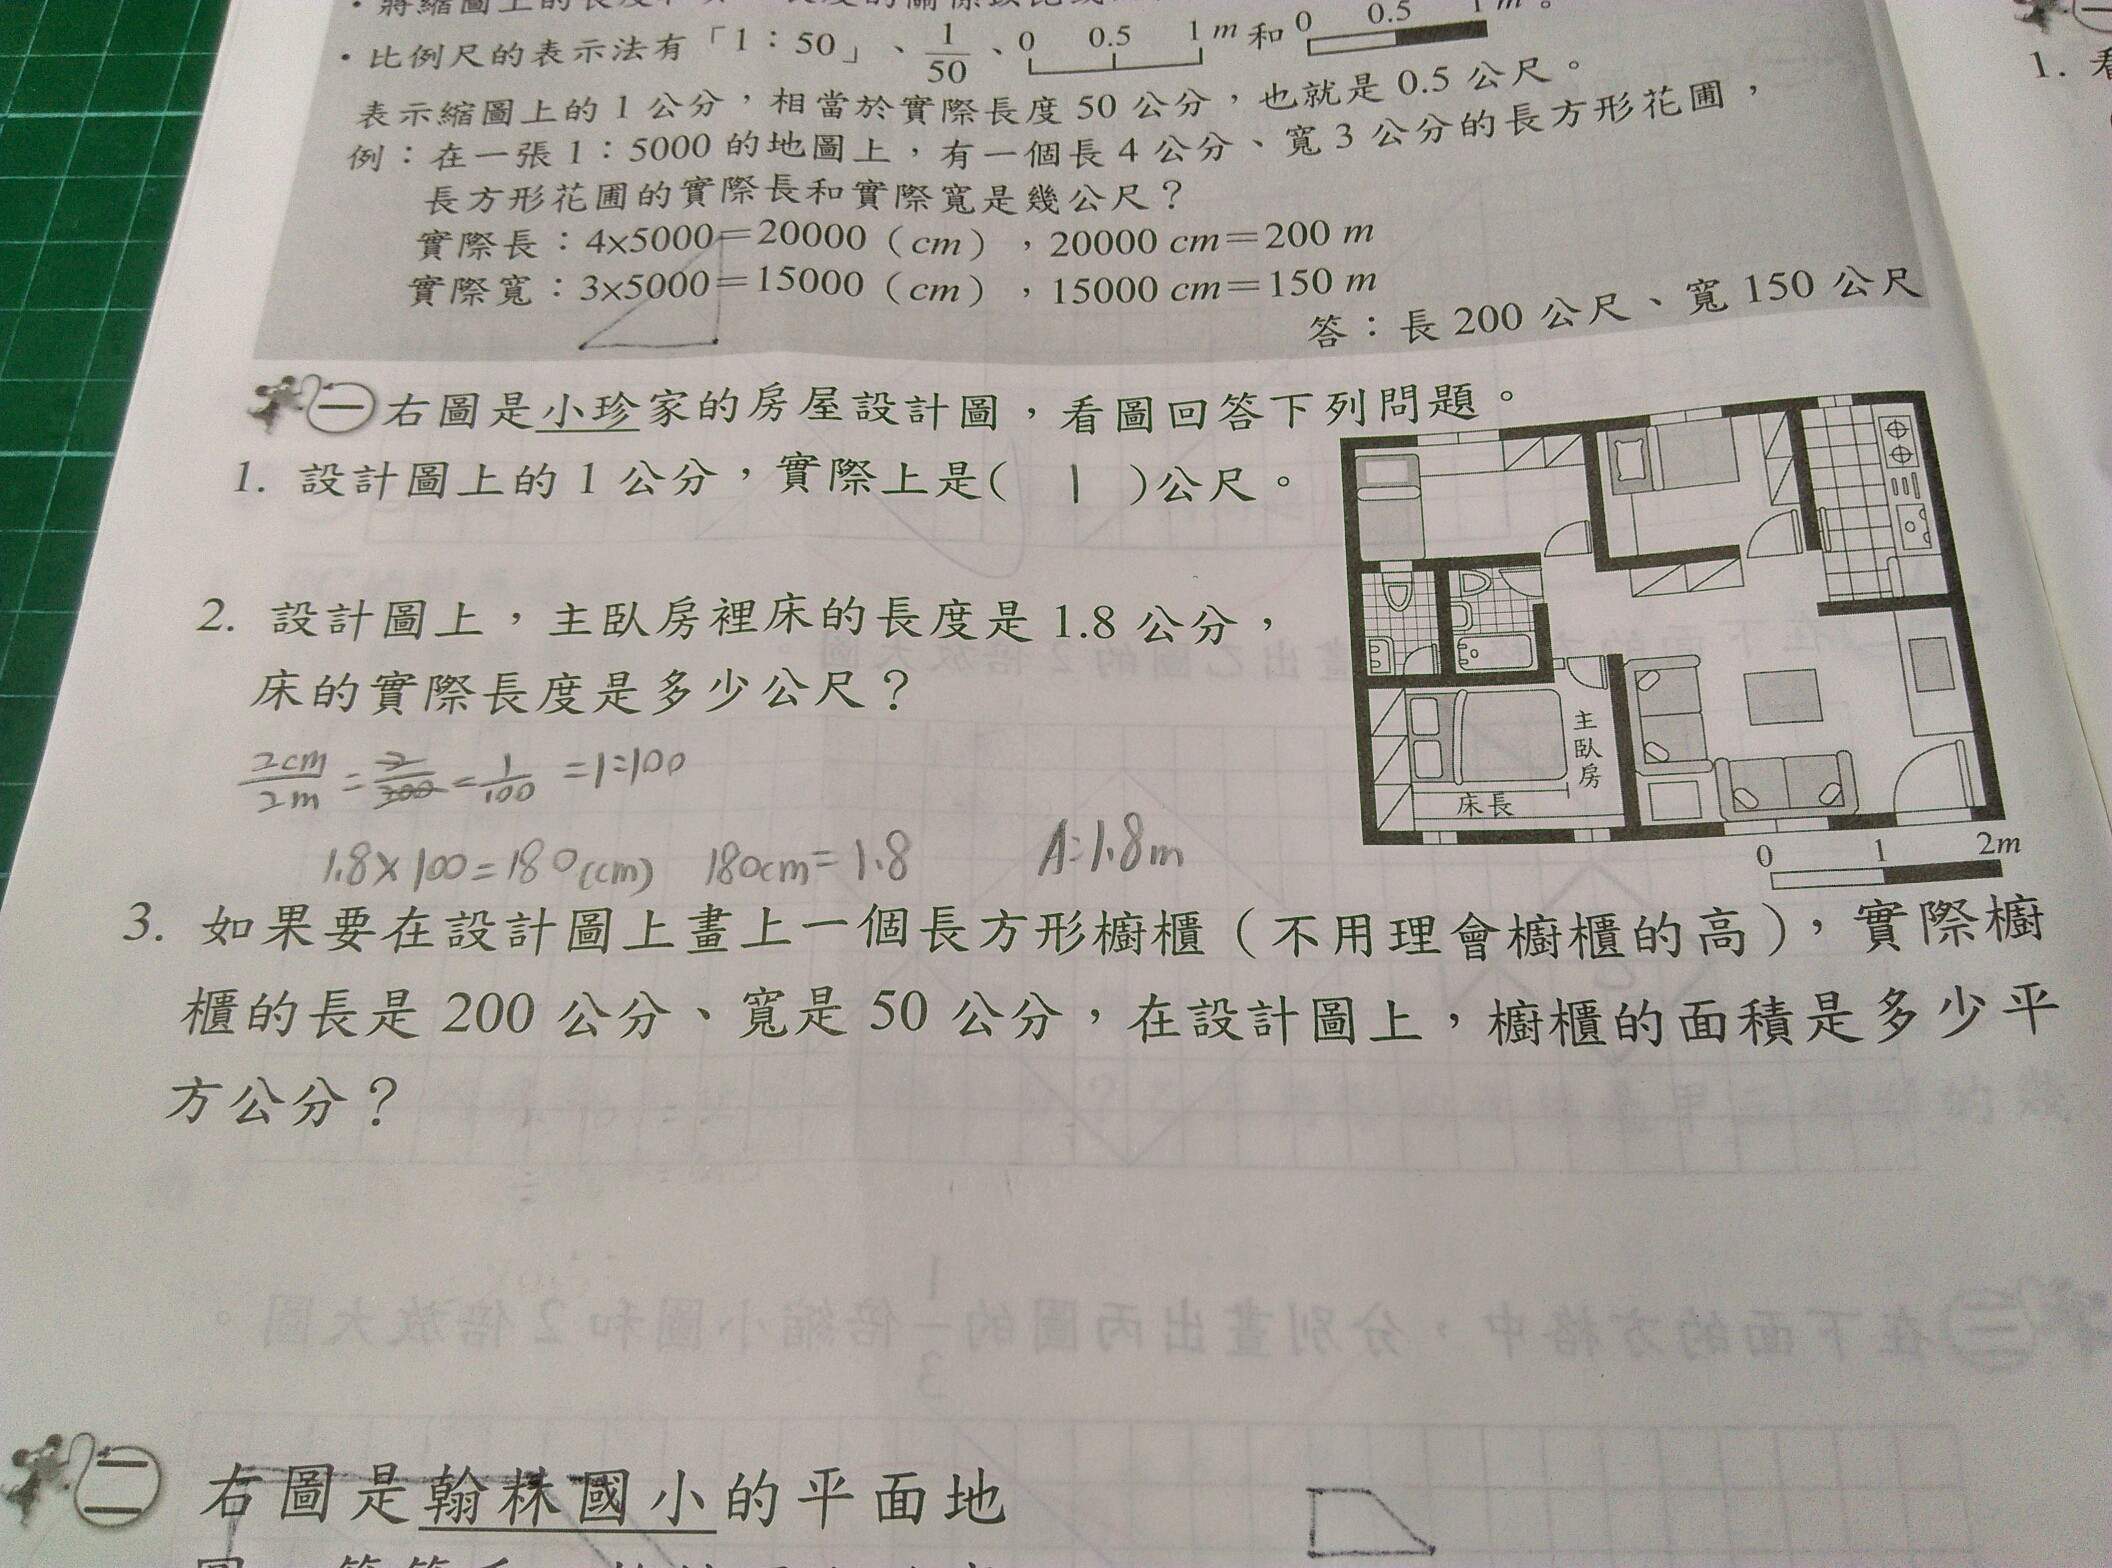 ・將縮圖上的長度
・比例尺的表示法有「1：50」、1/50、0 0.5 1 m 和 0 0.5 1 m。
表示縮圖上的 1 公分，相當於實際長度 50 公分，也就是 0.5 公尺。
例：在一張 1：5000 的地圖上，有一個長 4 公分、寬 3 公分的長方形花圃，
長方形花圃的實際長和實際寬是幾公尺？
實際長：4×5000＝20000（cm），20000 cm＝200 m
實際寬：3×5000＝15000（cm），15000 cm＝150 m
答：長 200 公尺、寬 150 公尺
1. 看
一 右圖是小珍家的房屋設計圖，看圖回答下列問題。
1. 設計圖上的 1 公分，實際上是( 1 )公尺。
2. 設計圖上，主臥房裡床的長度是 1.8 公分，
床的實際長度是多少公尺？
2cm/2m = 2/200 = 1/100 = 1:100
1.8×100=180(cm) 180cm=1.8 A:1.8m
主臥房
床長
0 1 2m
3. 如果要在設計圖上畫上一個長方形櫥櫃（不用理會櫥櫃的高），實際櫥
櫃的長是 200 公分、寬是 50 公分，在設計圖上，櫥櫃的面積是多少平
方公分？
二 右圖是翰林國小的平面地